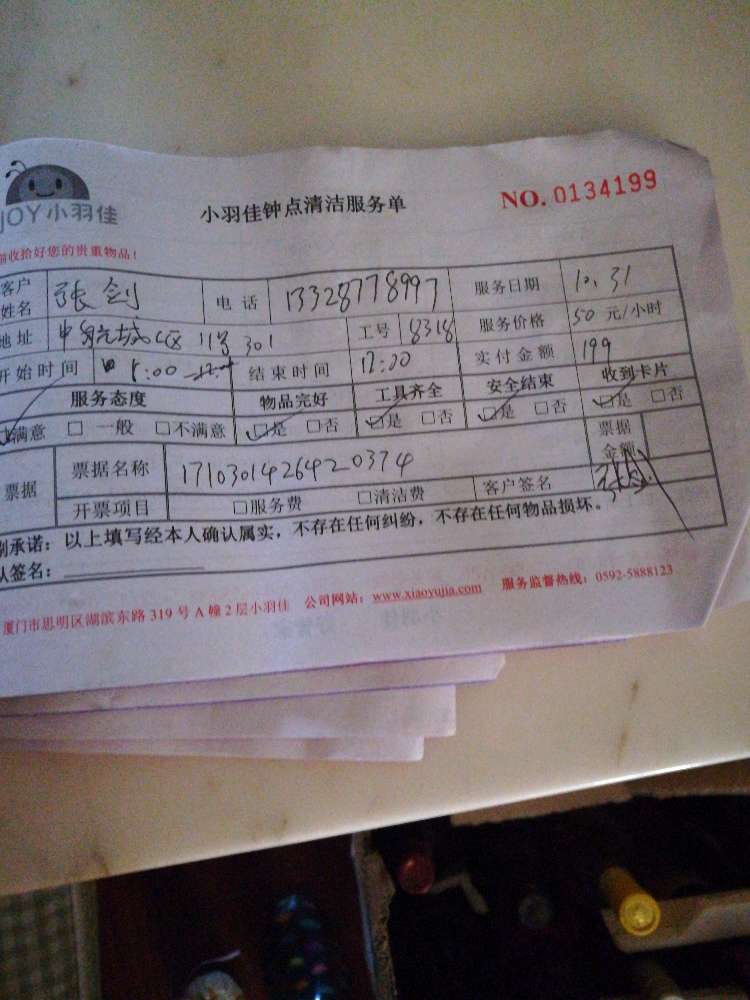 JOY小羽佳
小羽佳钟点清洁服务单
NO. 0134199
收拾好您的贵重物品！
客户姓名 张剑 电话 13328778997 服务日期 10.31
地址 中航城C区 11号 301 工号 8318 服务价格 50 元/小时
开始时间 8:00 结束时间 12:00 实付金额 199
服务态度 物品完好 工具齐全 安全结束 收到卡片
满意 □ 一般 □不满意 □是 □否 □是 □否 □是 □否 □是 □否
票据 票据名称 171030142642 0374 票据金额
开票项目 □服务费 □清洁费 客户签名
承诺：以上填写经本人确认属实，不存在任何纠纷，不存在任何物品损坏。
签名：
厦门市思明区湖滨东路 319 号 A 幢 2 层小羽佳 公司网站：www.xiaoyujia.com 服务监督热线：0592-5888123